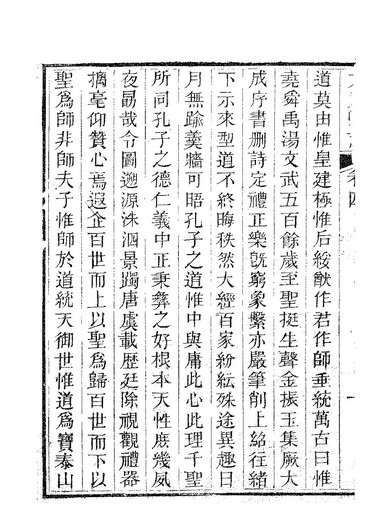 道莫由惟皇建極惟后綏猷作君作師垂統萬古曰惟
堯舜禹湯文武五百餘歲至聖挺生聲金振玉集厥大
成序書删詩定禮正樂旣窮象繫亦嚴筆削上紹往緒
下示來型道不終晦秩然大經百家紛紜殊途異趣日
月無踰羹牆可晤孔子之道惟中與庸此心此理千聖
所同孔子之德仁義中正秉彝之好根本天性庶幾夙
夜勗哉令圖遡源洙泗景躅唐虞載歷廷除視觀禮器
摛毫仰贊心焉遐企百世而上以聖爲歸百世而下以
聖爲師非師夫子惟師於道統天御世惟道爲寶泰山